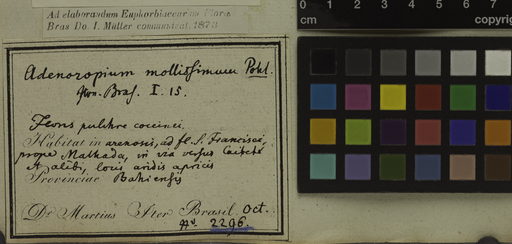 Ad elaborandum Euphorbiacearum Flora
Bras Dr. I. Müller communicat. 1873
Adenoropium mollissimum Pohl.
Flor. Bras. I. 15.
Flores pulchre coccinei.
Habitat in arenosis, ad fl. S. Francisci,
prope Malhada, in via versus Caiteté
et alibi, locis aridis apricis
Provinciae Bahiensis
Dr Martius Iter Brasil. Oct.
No. 2296.
0 1 2 3 4 5 6 7
cm copyrig